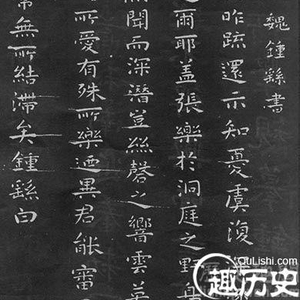 魏鍾繇書
昨疏還示知憂虞復
爾耶蓋張樂於洞庭之野
聞而深潛豈絲磬之響雲英
所愛有殊所樂迺異君能審
常無所結滯矣鍾繇白
QuLishi.com
趣历史